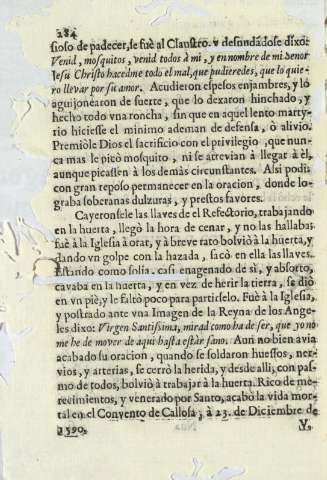 284
sioso de padecer, se fuè al Claustro. y desnudãdose dixo:
Venid, mosquitos, venid todos à mi, y en nombre de mi Señor
Jesu Christo hacedme todo el mal, que pudieredes, que lo quie-
ro llevar por su amor. Acudieron espesos enjambres, y lo
aguijonearon de suerte, que lo dexaron hinchado, y
hecho todo vna roncha, sin que en aquel lento marty-
rio hiciesse el minimo ademan de defensa, ò alivio.
Premiòle Dios el sacrificio con el privilegio, que nun-
ca mas le picò mosquito, ni se atrevian à llegar à èl,
aunque picassen à los demàs circunstantes. Alsi podia
con gran reposo permanecer en la oracion, donde lo-
graba soberanas dulzuras, y prestos favores.
Cayeronsele las llaves de el Refectorio, trabajando
en la huerta, llegò la hora de cenar, y no las hallaba;
fuè à la Iglesia à orar, y à breve rato bolviò à la huerta, y
dando vn golpe con la hazada, sacò en ella las llaves.
Estando como solia, casi enagenado de sì, y absorto,
cavaba en la huerta, y en vez de herir la tierra, se diò
en vn piè, y le faltò poco para partirselo. Fuè à la Iglesia,
y postrado ante vna Imagen de la Reyna de los Ange-
les dixo: Virgen Santissima, mirad como ha de ser, que yo no
me he de mover de aqui hasta estàr sano. Aun no bien avia
acabado su oracion, quando se soldaron huessos, ner-
vios, y arterias, se cerrò la herida, y desde alli, con pas-
mo de todos, bolviò à trabajar à la huerta. Rico de me-
recimientos, y venerado por Santo, acabò la vida mor-
tal en el Convento de Callosa, à 23. de Diciembre de
1590. V.